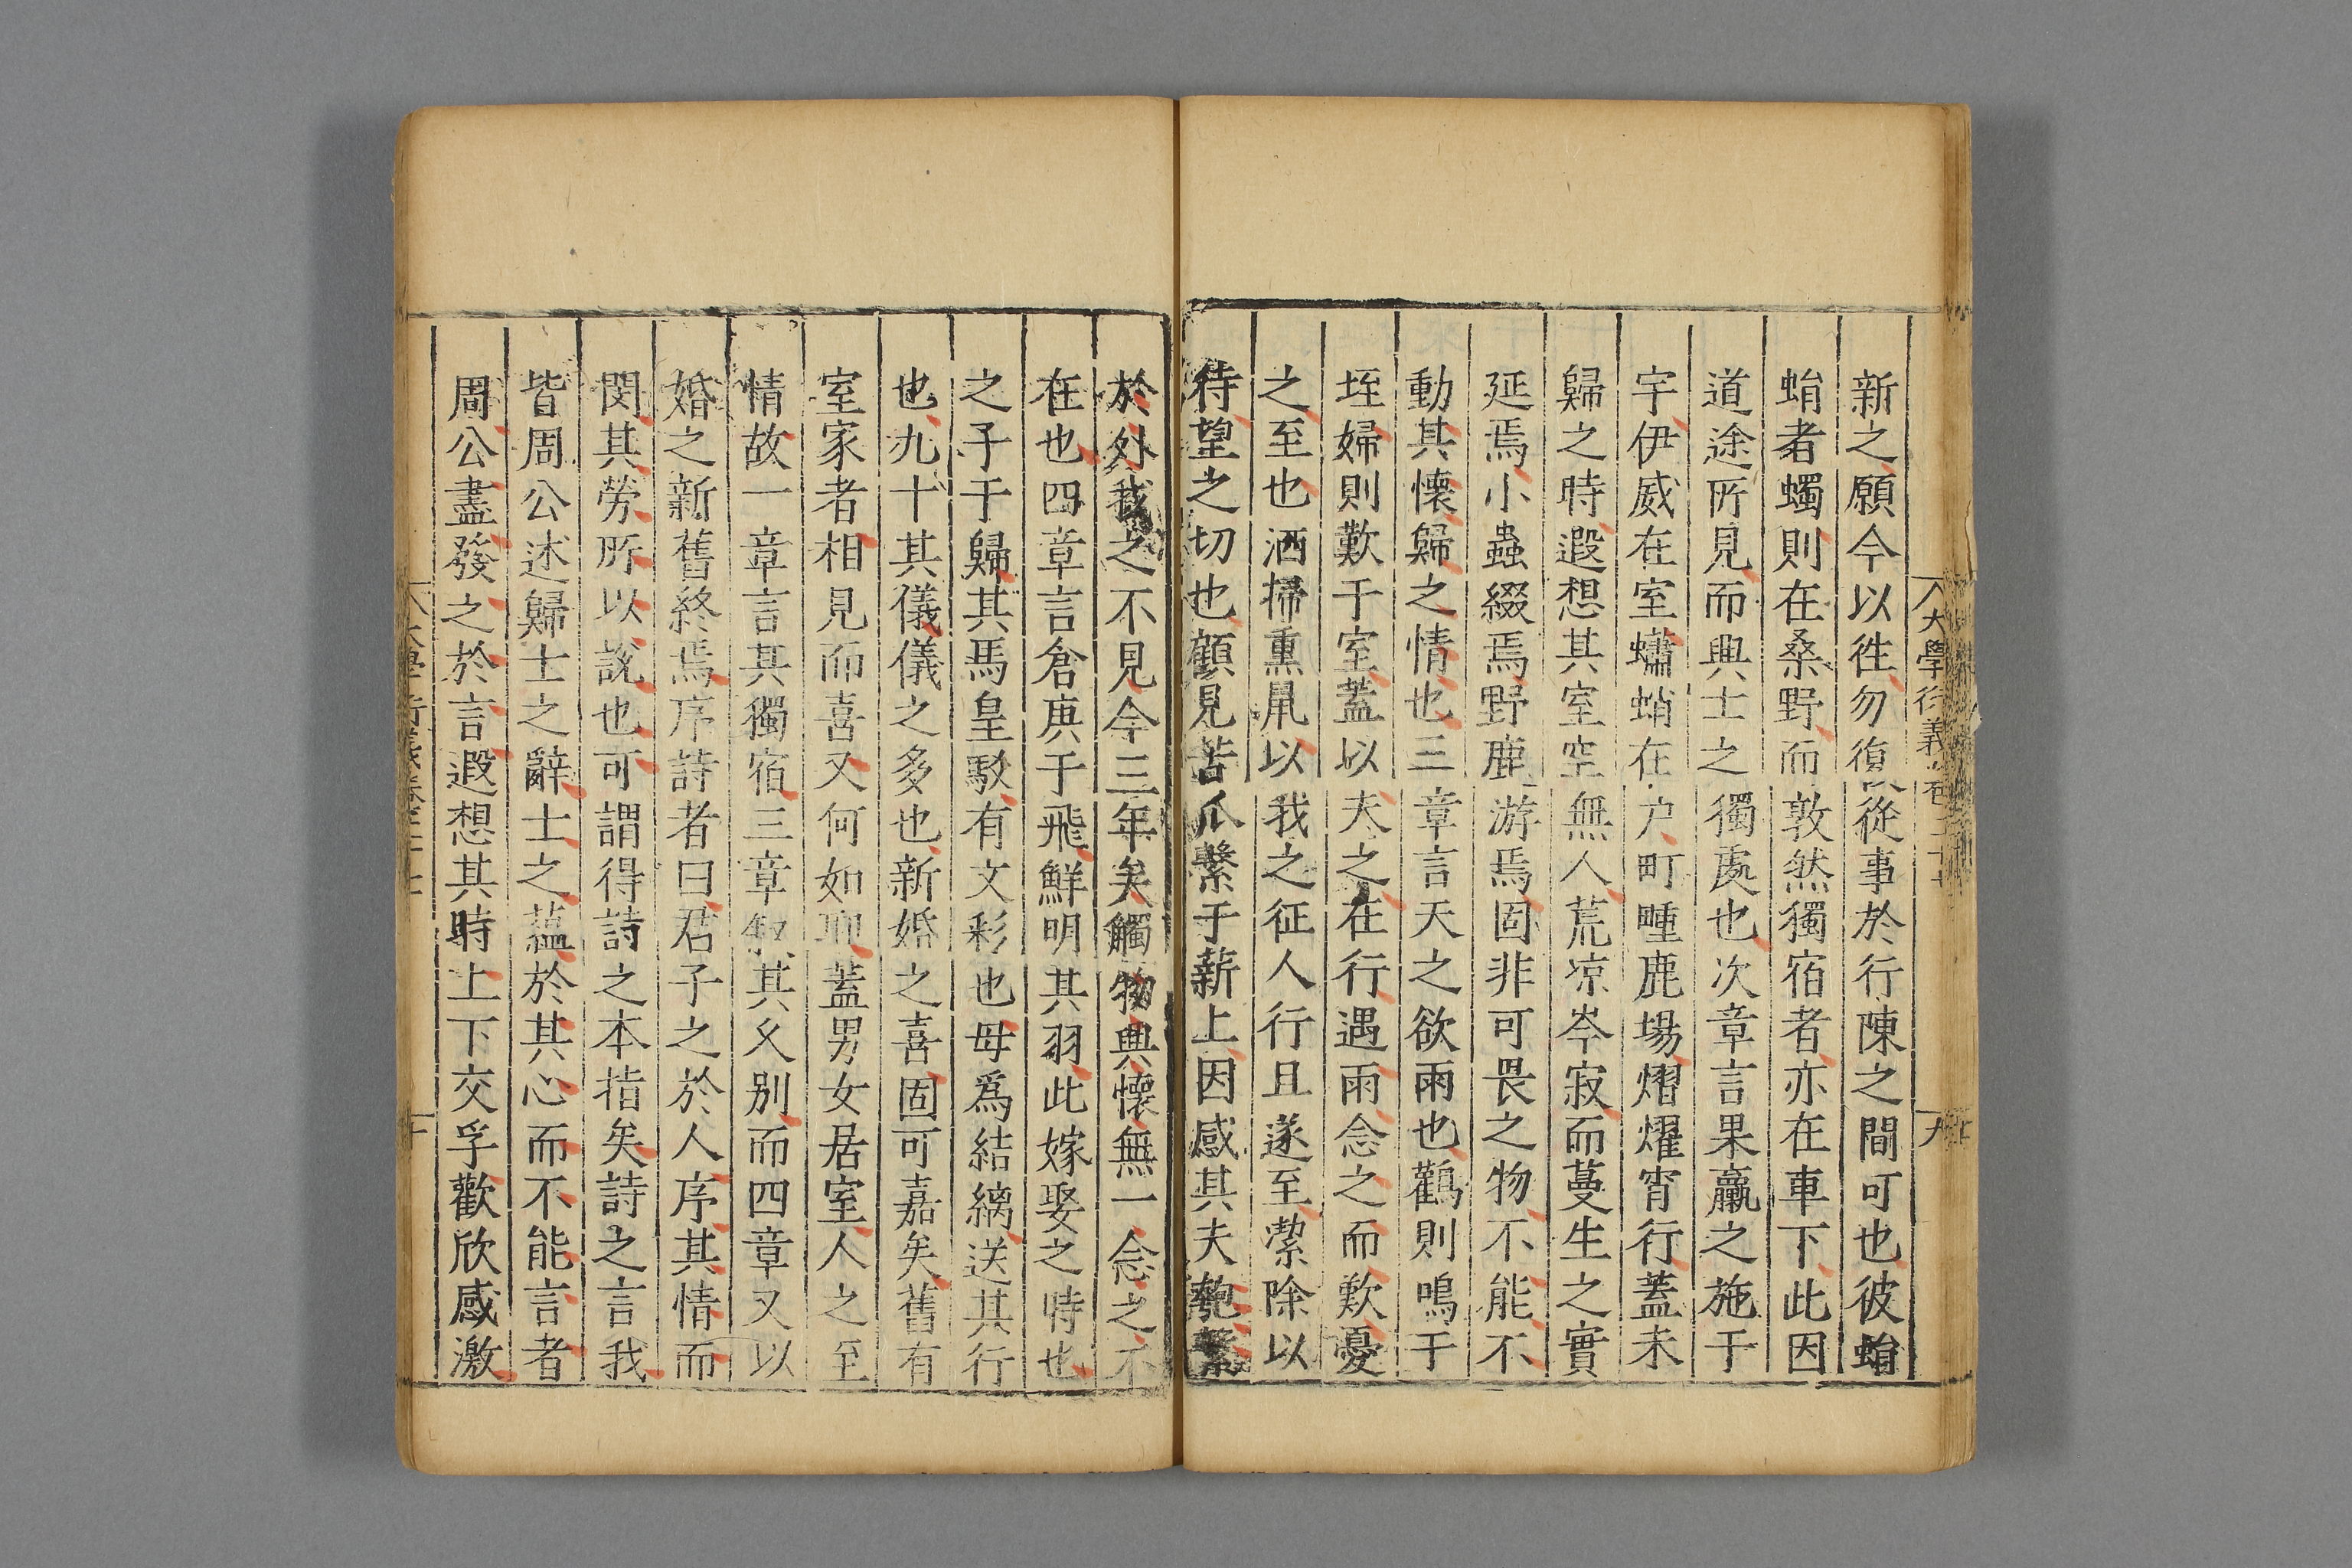 大學衍義卷二十七
九
新之願今以徃勿復從事於行陳之間可也彼蜎
蜎者蠋則在桑野而敦然獨宿者亦在車下此因
道途所見而興士之獨處也次章言果臝之施于
宇伊威在室蠨蛸在户町畽鹿場熠燿宵行蓋未
歸之時遐想其室空無人荒凉岑寂而蔓生之實
延焉小蟲綴焉野鹿游焉固非可畏之物不能不
動其懷歸之情也三章言天之欲雨也鸛則鳴于
垤婦則歎于室蓋以夫之在行遇雨念之而歎憂
之至也洒掃熏鼠以我之征人行且遂至潔除以
待望之切也顧見苦瓜繫于薪上因感其夫匏繫
於外我之不見今三年矣觸物興懷無一念之不
在也四章言倉庚于飛鮮明其羽此嫁娶之時也
之子于歸其馬皇駁有文彩也母爲結縭送其行
也九十其儀儀之多也新婚之喜固可嘉矣舊有
室家者相見而喜又何如耶蓋男女居室人之至
情故一章言其獨宿三章叙其久别而四章又以
婚之新舊終焉序詩者曰君子之於人序其情而
閔其勞所以說也可謂得詩之本指矣詩之言我
皆周公述歸士之辭士之蘊於其心而不能言者
周公盡發之於言遐想其時上下交孚歡欣感激